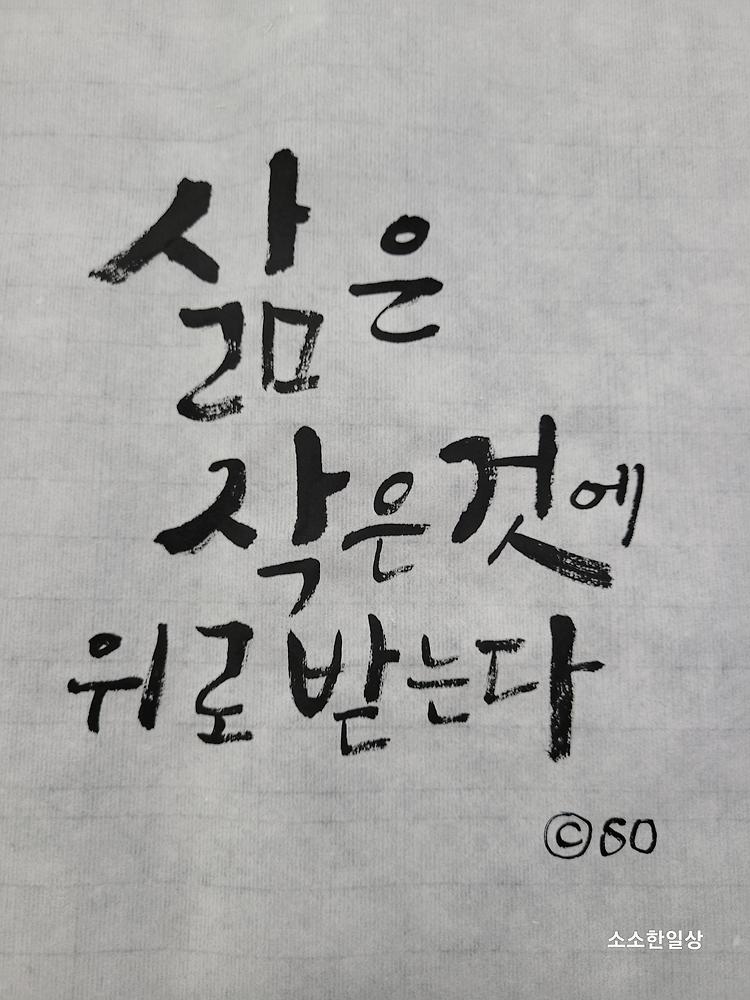 삶은
작은것에
위로받는다
©SO
소소한일상